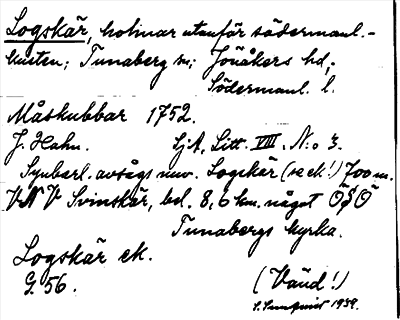 Logskär, holmar utanför södermanl.-
kusten; Tunaberg sn; Jönåkers hd;
Södermanl. l.
Måskubbar 1752.
J. Hahn. SjA, Litt. VIII. N:o 3.
Synbarl. avsågs nuv. Logskär (se ek!) 700 m.
VNV Svinskär, bel. 8,6 km. något ÖSÖ
Tunabergs kyrka.
Logskär ek.
G. 56. (Vänd!)
S. Sunqvist 1939.